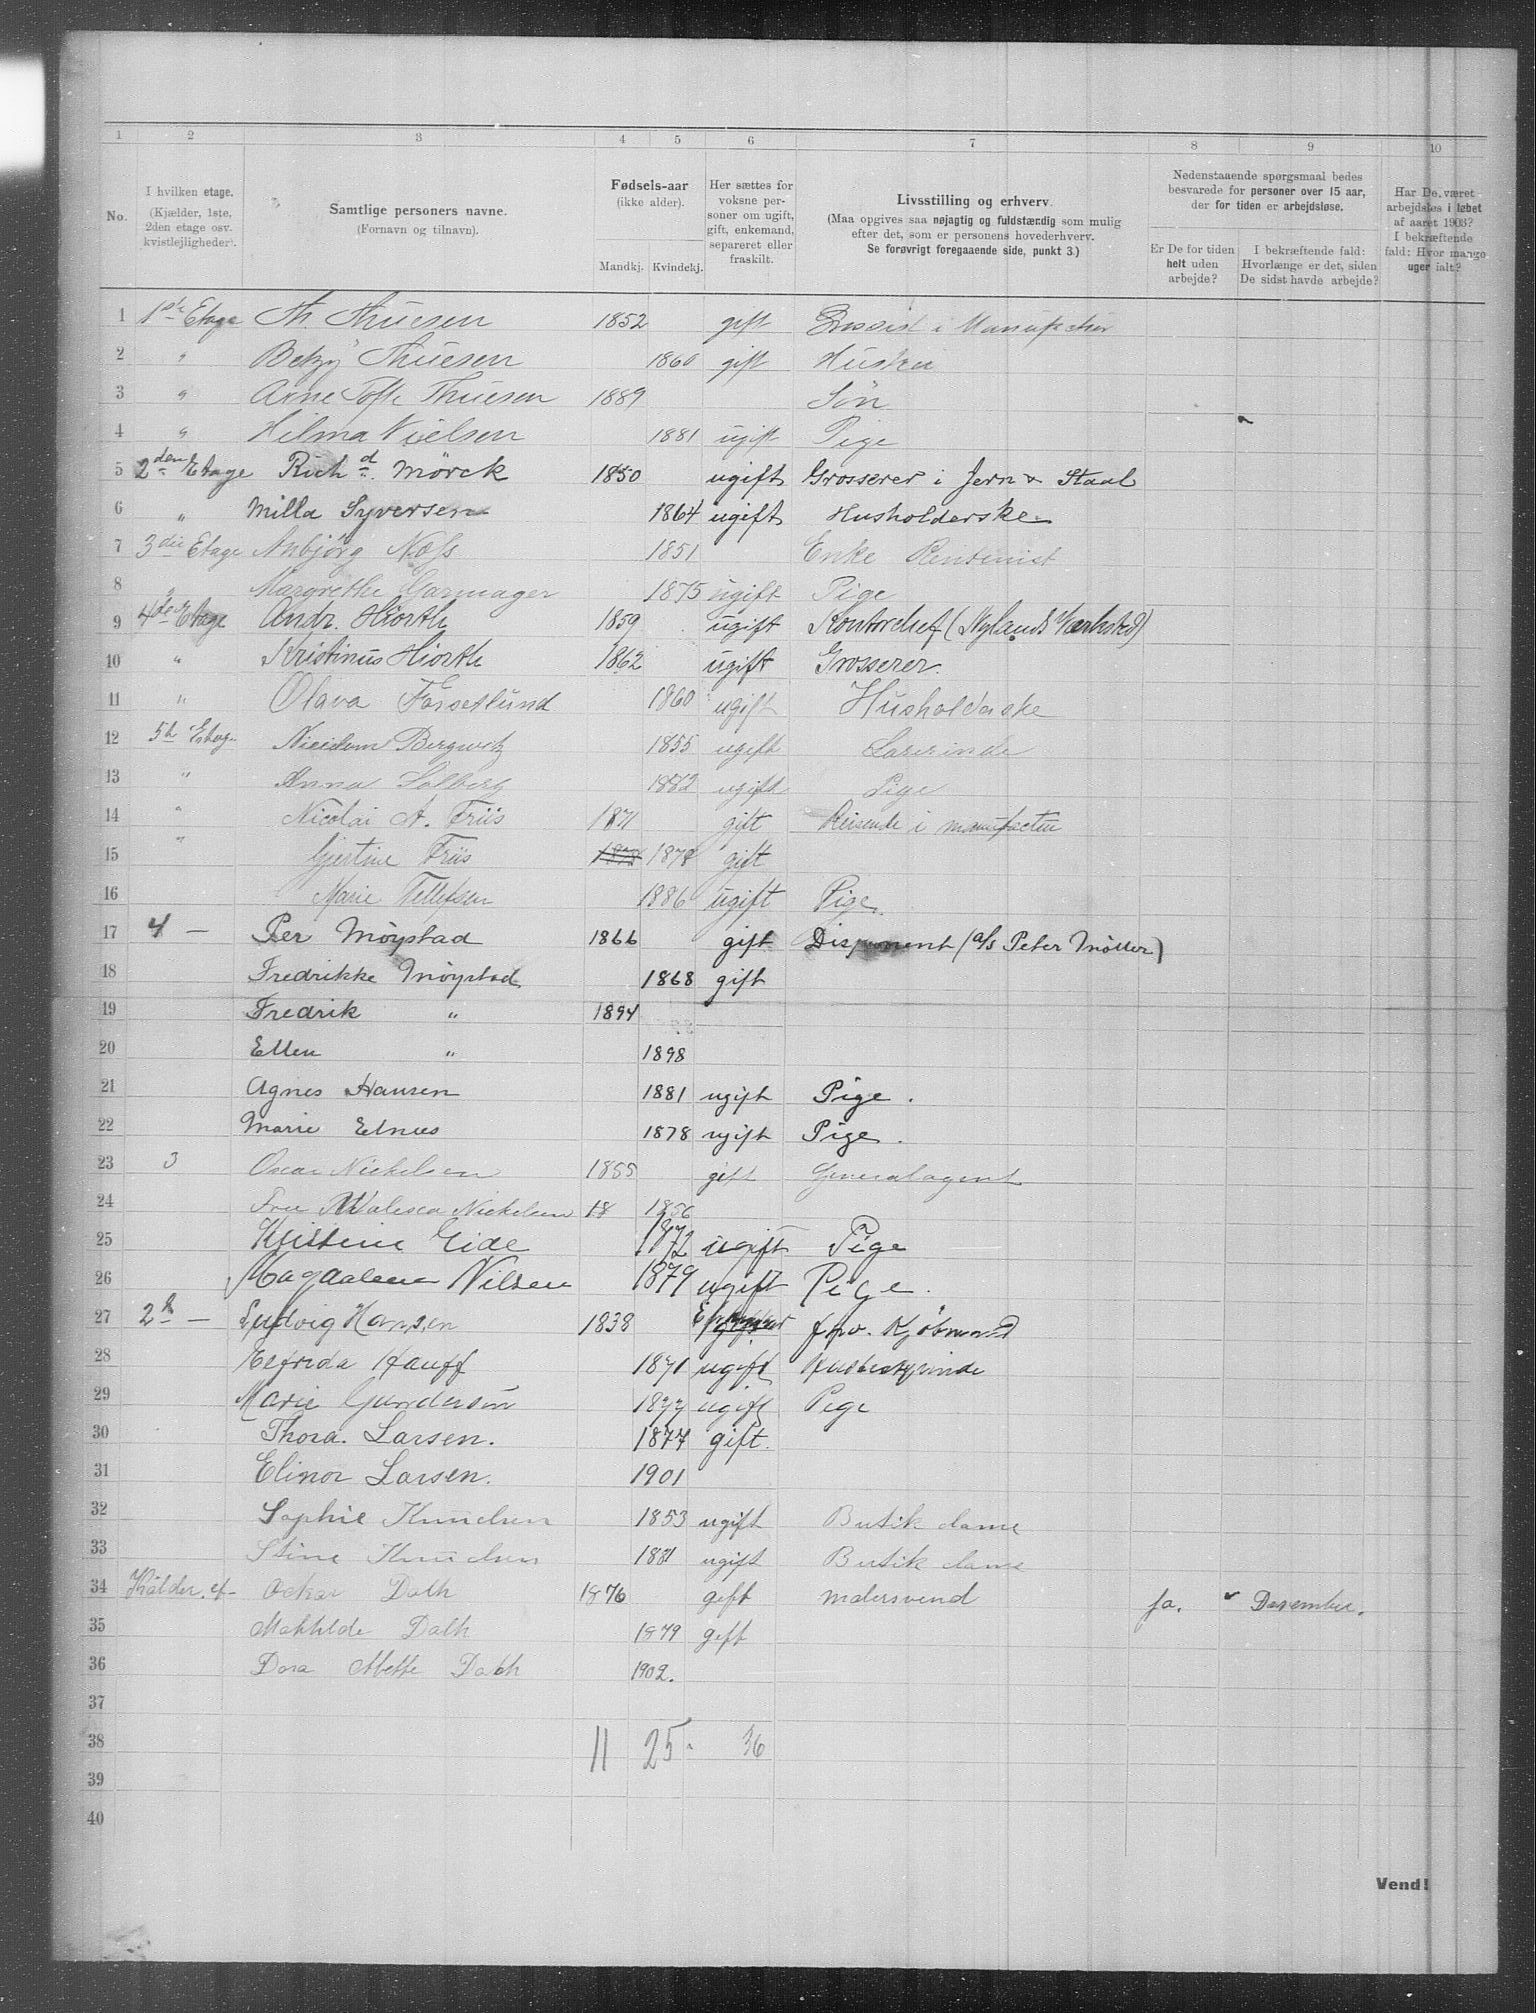 1 2 3 4 5 6 7 8 9 10
No.
I hvilken etage.
(Kjælder, 1ste, 2den etage osv. kvistleiligheder).
Samtlige personers navne.
(Fornavn og tilnavn).
Fødsels-aar
(ikke alder).
Mandkj. Kvindekj.
Her sættes for voksne personer om ugift, gift, enkemand, separeret eller fraskilt.
Livsstilling og erhverv.
(Maa opgives saa nøjagtig og fuldstændig som mulig efter det, som er personens hovederhverv.
Se forøvrigt foregaaende side, punkt 3.)
Nedenstaaende spørgsmaal bedes besvarede for personer over 15 aar, der for tiden er arbejdsløse.
Er De for tiden helt uden arbejde?
I bekræftende fald: Hvorlænge er det, siden De sidst havde arbejde?
Har De været arbejdsløs i løbet af aaret 1903? I bekræftende fald: Hvor mange uger ialt?
1 1ste Etage Th. Thuesen 1852 gift Grossist i Manufactur
2 " Betzy Thuesen 1860 gift Hustru
3 " Arne Tofte Thuesen 1889 Søn
4 " Hilma Nielsen 1881 ugift Pige
5 2den Etage Richd. Mörck 1850 ugift Grosserer i Jern & Staal
6 " Milla Syversen 1864 ugift Husholderske
7 3die Etage Anbjörg Næss 1851 Enke Rentenist
8 " Margrethe Garmager 1875 ugift Pige
9 4de Etage Andr. Hiorth 1859 ugift Kontorchef (Nylands Værksted)
10 " Kristinus Hiorth 1862 ugift Grosserer.
11 " Olava Forsetlund 1860 ugift Husholderske
12 5te Etag. Bergwitz 1855 ugift Lærerinde
13 " Anna Solberg 1882 ugift Pige
14 " Nicolai A. Friis 1871 gift Reisende i manufactur
15 " Gjertine Friis 1878 1878 gift
16 Marie Tellefsen 1886 ugift Pige.
17 4 — Per Möystad 1866 gift Disponent (a/s Peter Möller)
18 Fredrikke Möystad 1868 gift
19 Fredrik " 1894
20 Ellen " 1898
21 Agnes Hansen 1881 ugift Pige.
22 Marie Elnæs 1878 ugift Pige.
23 3 Oscar Nickelsen 1855 gift Generalagent
24 Fru Valesca Nickelsen 18 1856
25 Kristine Eide 1872 ugift Pige
26 Magdalene Nilsen 1879 ugift Pige.
27 2den — Ludvig Hansen 1838 Enkemand fhv. Kjöbmand
28 Elfrida Hauff 1871 ugift Husbestyrinde
29 Marie Gundersen 1877 ugift Pige
30 Thora. Larsen. 1877 gift.
31 Elinor Larsen. 1901
32 Sophie Knudsen 1853 ugift Butik dame
33 Stine Knudsen 1881 ugift Butik dame
34 Kälder. Oskar Dalh 1876 gift malersvend ja. Desember.
35 Mathilde Dalh 1879 gift
36 Dora Mette Dalh 1902.
37
38 11 25. 36
39
40
Vend!